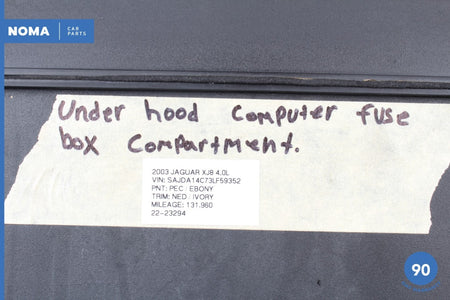 NOMA CAR
PARTS
Under hood Computer fuse
box Compartment.
2003 JAGUAR XJ8 4.0L
VIN: SAJDA14C73LF59352
PNT: PEC / EBONY
TRIM: NED / IVORY
MILEAGE: 131,960
22-23294
90